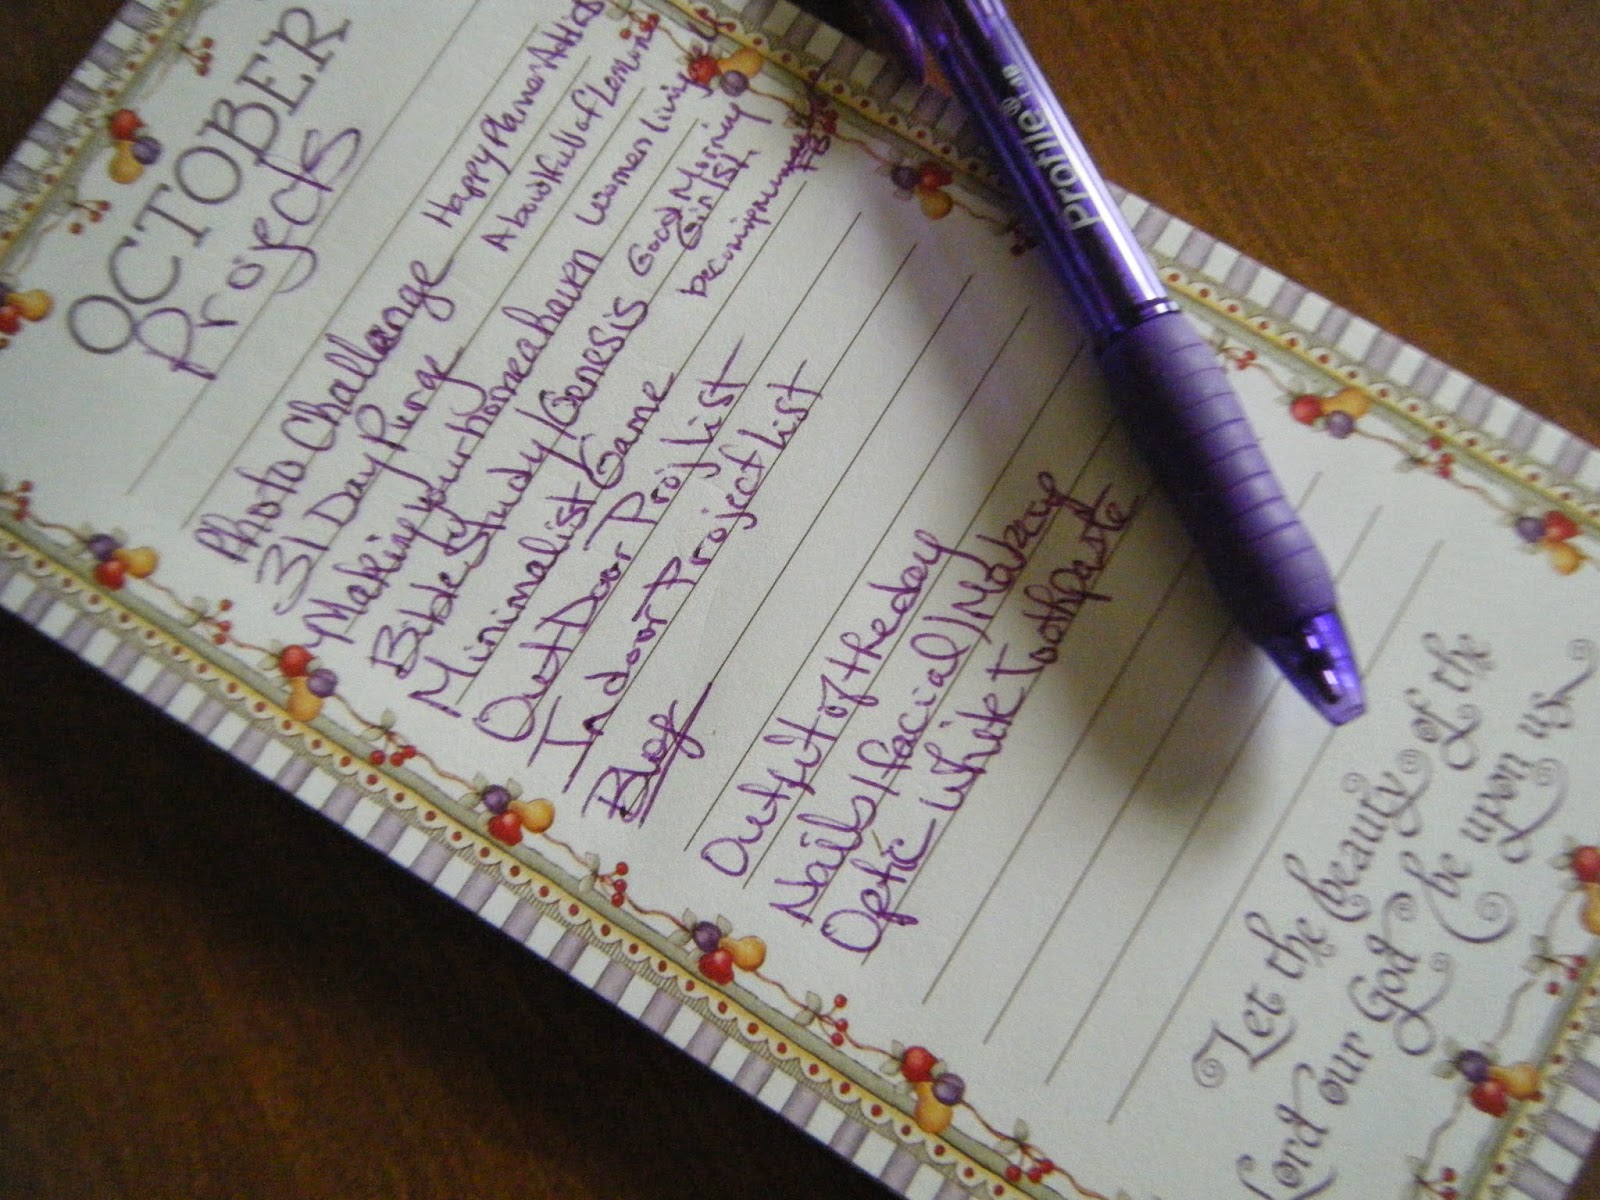 OCTOBER
Projects
Photo Challange - Happy Planner Addict
31 Day Purge - A bowl full of lemons
Making your home a haven women living
Bible Study/Genesis Good Morning Girls 1st.
Minimalist Game becoming FB
Out Door Proj List
Indoor Project List
Blog
Outfit of the day
Nails/facial/Makeup
Optic White Toothpaste
Let the beauty of the
Lord our God be upon us
Profile